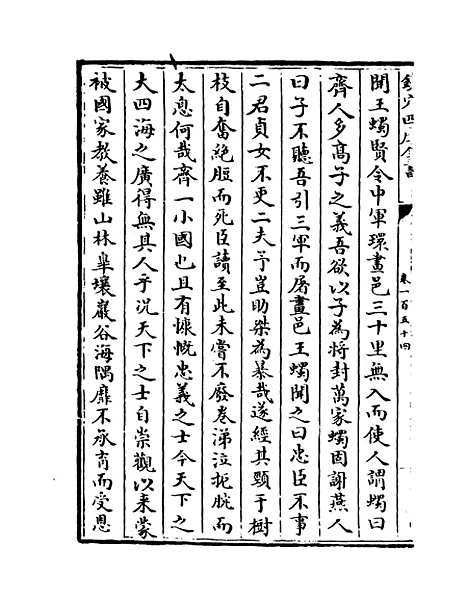 欽定四庫全書
卷一百五十四
聞王蠋賢令中軍環畫邑三十里無入而使人謂蠋曰
齊人多髙子之義吾欲以子為將封萬家蠋固謝燕人
曰子不聽吾引三軍而屠畫邑王蠋聞之曰忠臣不事
二君貞女不更二夫予豈助桀為暴哉遂經其頸于樹
枝自奮絶脰而死臣讀至此未嘗不廢卷涕泣扼腕而
太息何哉齊一小國也且有慷慨忠義之士今天下之
大四海之廣得無其人乎况天下之士自崇觀以来蒙
被國家教養雖山林臯壤巖谷海隅靡不承育而受恩